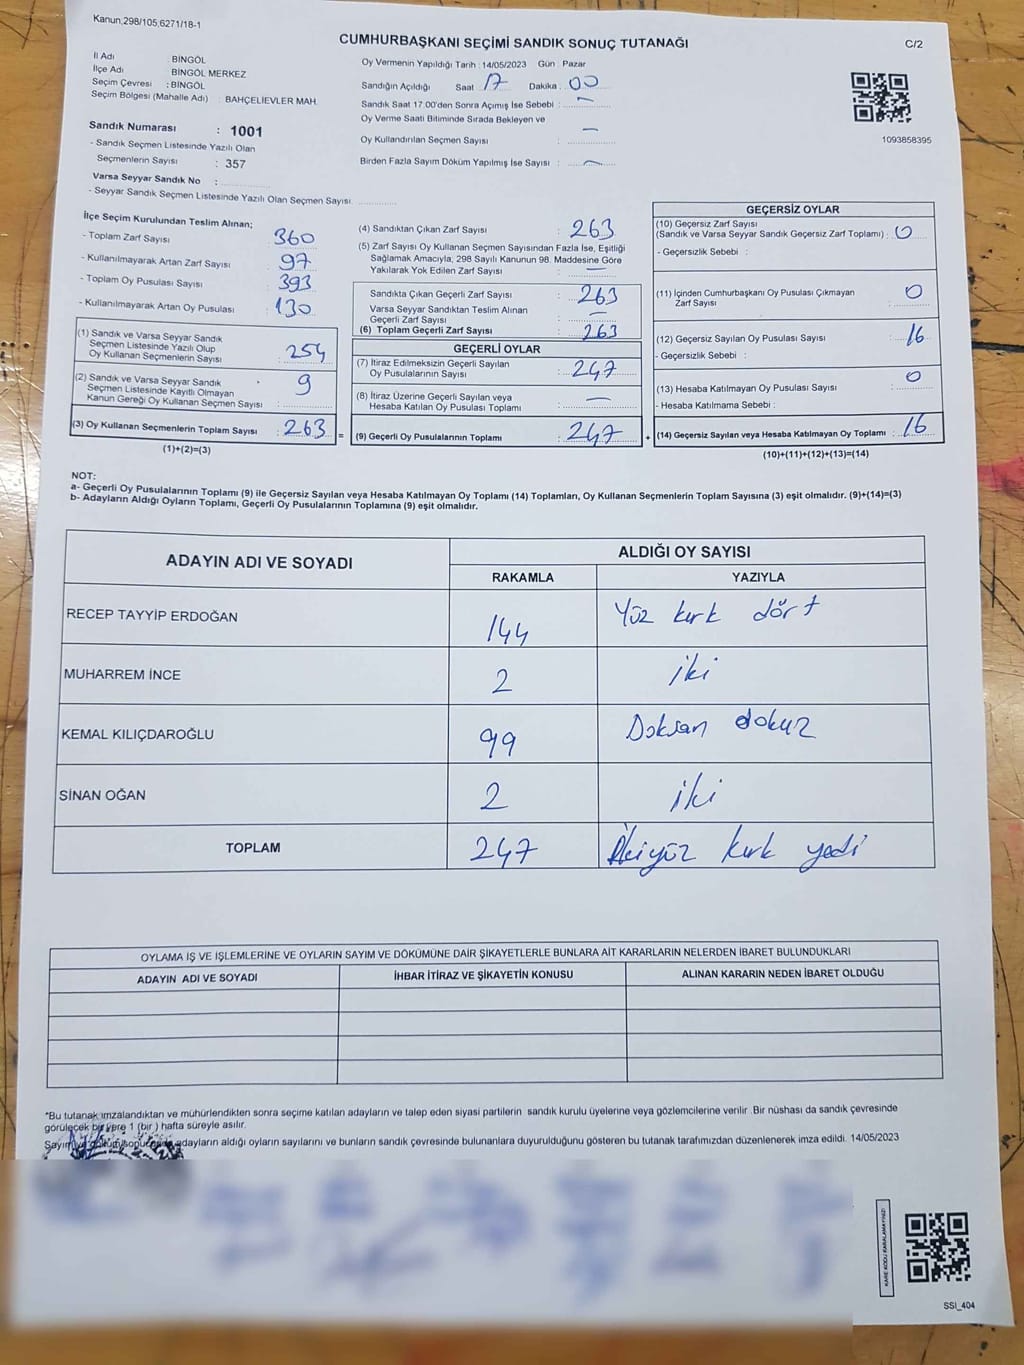 Kanun,298/105,6271/18-1
CUMHURBAŞKANI SEÇİMİ SANDIK SONUÇ TUTANAĞI
C/2
İl Adı : BİNGÖL
İlçe Adı : BİNGÖL MERKEZ
Seçim Çevresi : BİNGÖL
Seçim Bölgesi (Mahalle Adı) : BAHÇELİEVLER MAH.
Sandık Numarası : 1001
- Sandık Seçmen Listesinde Yazılı Olan
Seçmenlerin Sayısı : 357
Varsa Seyyar Sandık No :
- Seyyar Sandık Seçmen Listesinde Yazılı Olan Seçmen Sayısı
Oy Vermenin Yapıldığı Tarih : 14/05/2023 Gün : Pazar
Sandığın Açıldığı Saat 17 Dakika : 00
Sandık Saat 17.00'den Sonra Açımış İse Sebebi : —
Oy Verme Saati Bitiminde Sırada Bekleyen ve
Oy Kullandırılan Seçmen Sayısı : —
Birden Fazla Sayım Döküm Yapılmış İse Sayısı : —
1093858395
İlçe Seçim Kurulundan Teslim Alınan;
- Toplam Zarf Sayısı : 360
- Kullanılmayarak Artan Zarf Sayısı : 97
- Toplam Oy Pusulası Sayısı : 393
- Kullanılmayarak Artan Oy Pusulası : 130
(1) Sandık ve Varsa Seyyar Sandık
Seçmen Listesinde Yazılı Olup
Oy Kullanan Seçmenlerin Sayısı : 254
(2) Sandık ve Varsa Seyyar Sandık
Seçmen Listesinde Kayıtlı Olmayan
Kanun Gereği Oy Kullanan Seçmen Sayısı : 9
(3) Oy Kullanan Seçmenlerin Toplam Sayısı : 263
(1)+(2)=(3)
(4) Sandıktan Çıkan Zarf Sayısı : 263
(5) Zarf Sayısı Oy Kullanan Seçmen Sayısından Fazla İse, Eşitliği
Sağlamak Amacıyla, 298 Sayılı Kanunun 98. Maddesine Göre
Yakılarak Yok Edilen Zarf Sayısı : —
Sandıkta Çıkan Geçerli Zarf Sayısı : 263
Varsa Seyyar Sandıktan Teslim Alınan
Geçerli Zarf Sayısı : —
(6) Toplam Geçerli Zarf Sayısı : 263
GEÇERLİ OYLAR
(7) İtiraz Edilmeksizin Geçerli Sayılan
Oy Pusulalarının Sayısı : 247
(8) İtiraz Üzerine Geçerli Sayılan veya
Hesaba Katılan Oy Pusulası Toplamı : —
= (9) Geçerli Oy Pusulalarının Toplamı : 247
GEÇERSİZ OYLAR
(10) Geçersiz Zarf Sayısı
(Sandık ve Varsa Seyyar Sandık Geçersiz Zarf Toplamı) : 0
- Geçersizlik Sebebi :
(11) İçinden Cumhurbaşkanı Oy Pusulası Çıkmayan
Zarf Sayısı : 0
(12) Geçersiz Sayılan Oy Pusulası Sayısı : 16
- Geçersizlik Sebebi :
(13) Hesaba Katılmayan Oy Pusulası Sayısı : 0
- Hesaba Katılmama Sebebi :
+ (14) Geçersiz Sayılan veya Hesaba Katılmayan Oy Toplamı : 16
(10)+(11)+(12)+(13)=(14)
NOT:
a- Geçerli Oy Pusulalarının Toplamı (9) ile Geçersiz Sayılan veya Hesaba Katılmayan Oy Toplamı (14) Toplamları, Oy Kullanan Seçmenlerin Toplam Sayısına (3) eşit olmalıdır. (9)+(14)=(3)
b- Adayların Aldığı Oyların Toplamı, Geçerli Oy Pusulalarının Toplamına (9) eşit olmalıdır.
ADAYIN ADI VE SOYADI
ALDIĞI OY SAYISI
RAKAMLA YAZIYLA
RECEP TAYYİP ERDOĞAN 144 Yüz kırk dört
MUHARREM İNCE 2 iki
KEMAL KILIÇDAROĞLU 99 Doksan dokuz
SİNAN OĞAN 2 iki
TOPLAM 247 İkiyüz kırk yedi
OYLAMA İŞ VE İŞLEMLERİNE VE OYLARIN SAYIM VE DÖKÜMÜNE DAİR ŞİKAYETLERLE BUNLARA AİT KARARLARIN NELERDEN İBARET BULUNDUKLARI
ADAYIN ADI VE SOYADI İHBAR İTİRAZ VE ŞİKAYETİN KONUSU ALINAN KARARIN NEDEN İBARET OLDUĞU
*Bu tutanak imzalandıktan ve mühürlendikten sonra seçime katılan adayların ve talep eden siyasi partilerin sandık kurulu üyelerine veya gözlemcilerine verilir .Bir nüshası da sandık çevresinde
görülecek bir yere 1 (bir ) hafta süreyle asılır.
adayların aldığı oyların sayılarını ve bunların sandık çevresinde bulunanlara duyurulduğunu gösteren bu tutanak tarafımızdan düzenlenerek imza edildi. 14/05/2023
KARE KODU KARALAMAYINIZ!
SSI_404